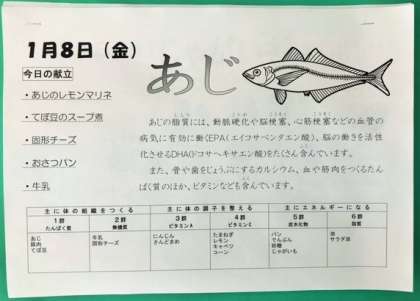 1月8日(金)
あじ
今日の献立
・あじのレモンマリネ
・てぼ豆のスープ煮
・固形チーズ
・おさつパン
・牛乳
あじの脂質には、動脈硬化や脳梗塞、心筋梗塞などの血管の
病気に有効に働くEPA(エイコサペンタエン酸)、脳の働きを活性
化させるDHA(ドコサヘキサエン酸)をたくさん含んでいます。
また、骨や歯をじょうぶにするカルシウム、血や筋肉をつくるたん
ぱく質のほか、ビタミンなども含んでいます。
主に体の組織をつくる 主に体の調子を整える 主にエネルギーになる
1群 2群 3群 4群 5群 6群
たんぱく質 無機質 ビタミンA ビタミンC 炭水化物 脂質
あじ 牛乳 にんじん たまねぎ パン 油
豚肉 固形チーズ さんどまめ レモン でんぷん サラダ油
てぼ豆 キャベツ 砂糖
コーン じゃがいも